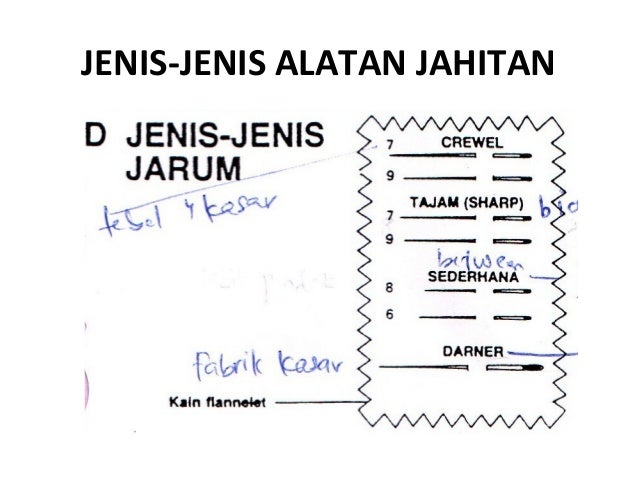 JENIS-JENIS ALATAN JAHITAN
D JENIS-JENIS
JARUM
tebal & kasar
7 CREWEL
9
TAJAM (SHARP)
7
9
SEDERHANA
8
6
DARNER
fabrik kasar
Kain flannelet